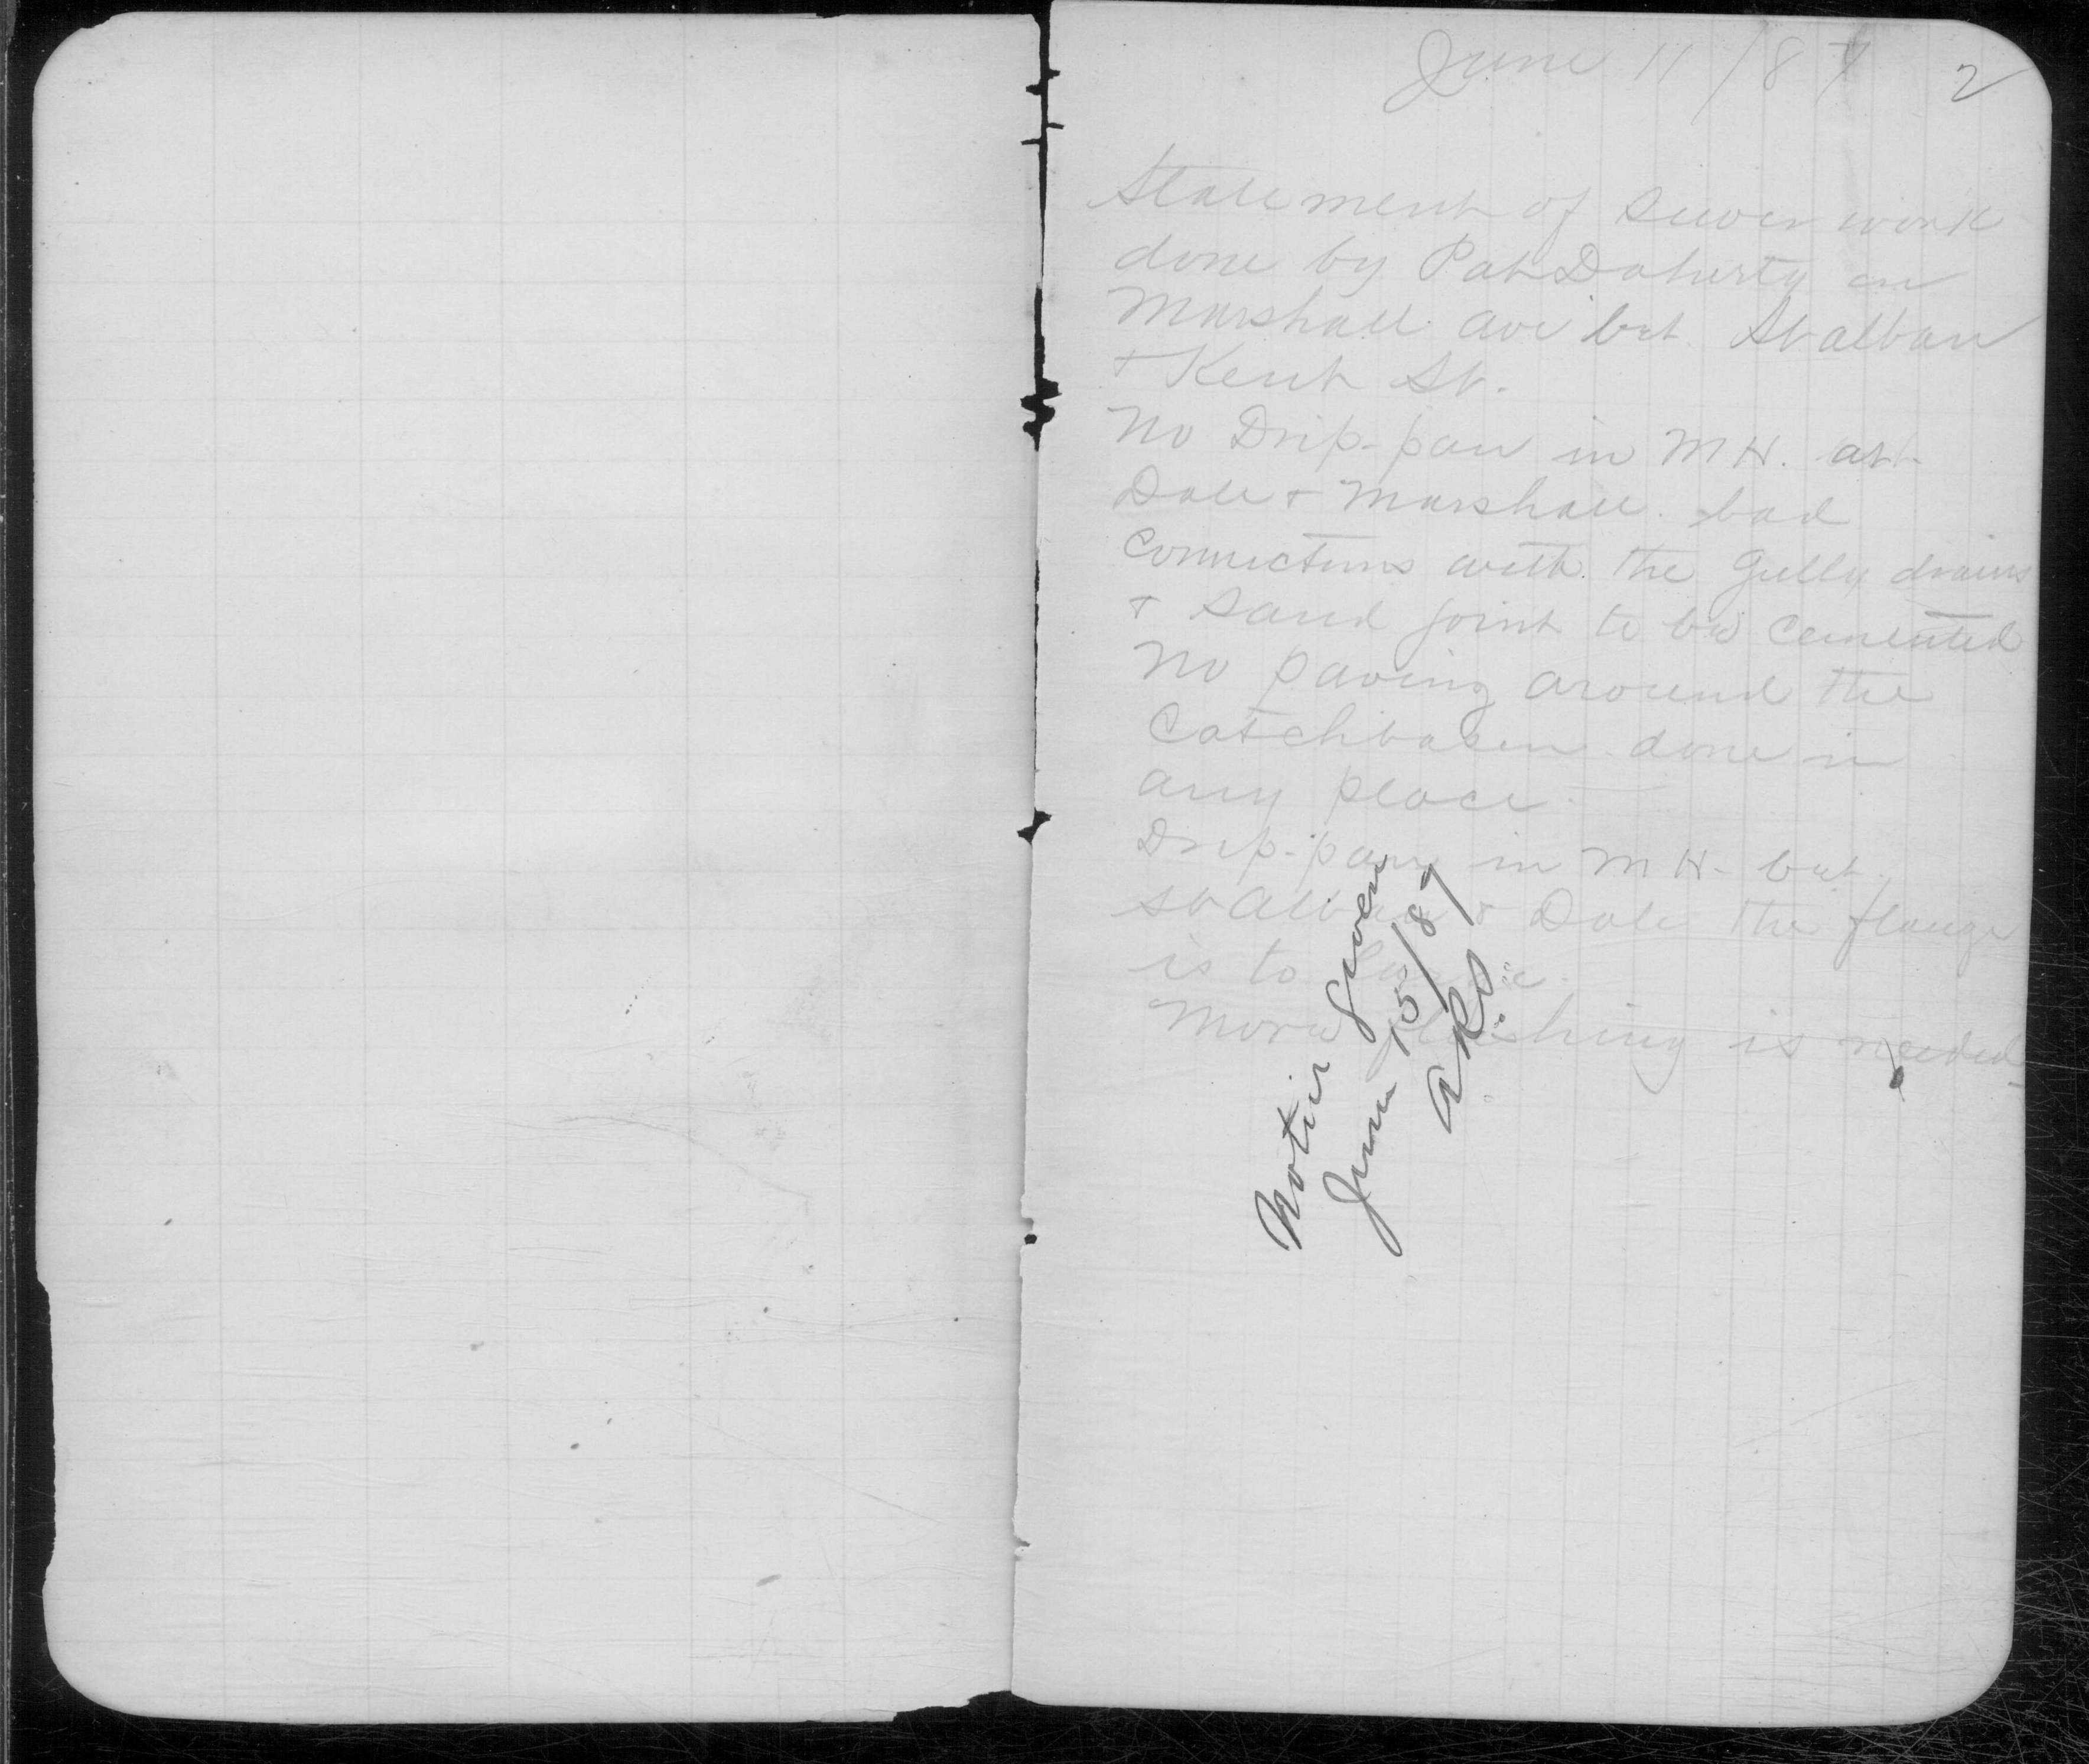 June 11/87 2
Statement of Sewer work
done by Pat Doherty on
Marshall ave bet St Alban
+ Kent St.
No Drip-pan in M H. at
Dale + Marshall. bad
Connections with the Gully drains
+ Sand joint to be Cemented
No paving around the
Catchbasin done in
any place.
Drip-pan in M H- bet.
St Alban + Dale the flange
is to
More is needed
Notice given
June 15/87